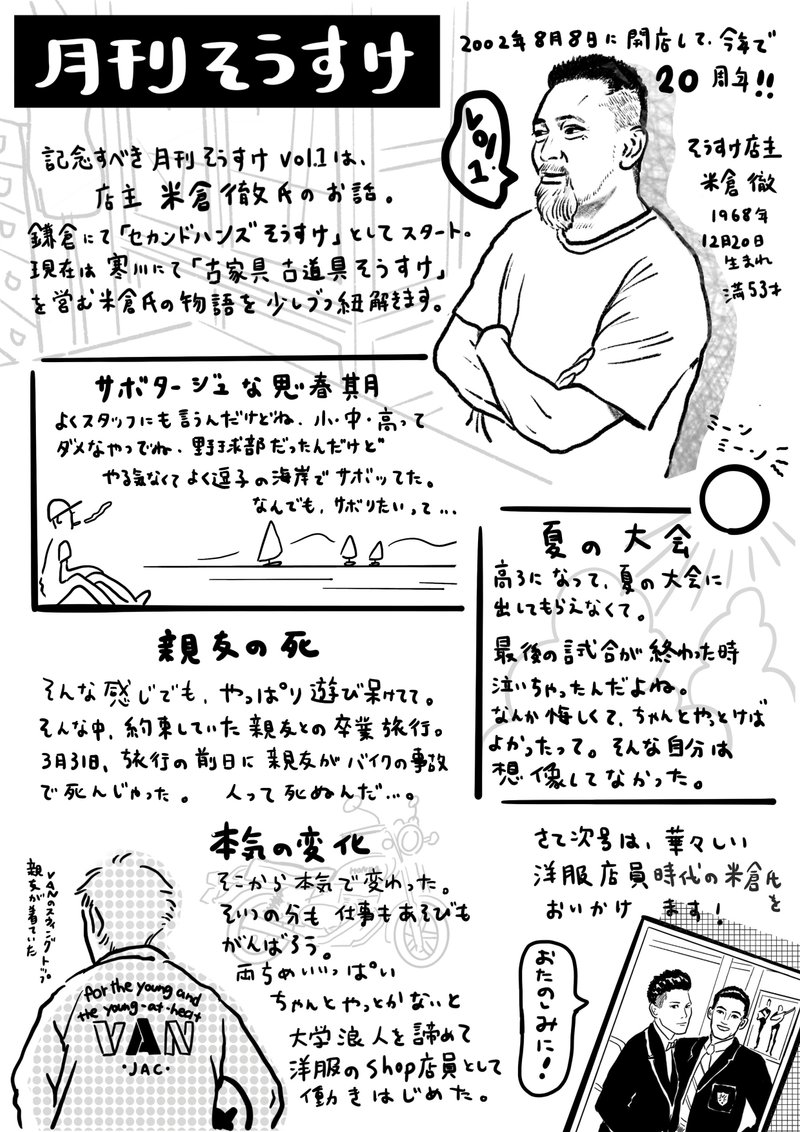 月刊そうすけ
2002年8月8日に開店して、今年で
20周年!!
vol.1
そうすけ店主
米倉 徹
1968年
12月20日
生まれ
満53才
記念すべき月刊そうすけ vol.1は、
店主 米倉徹氏のお話。
鎌倉にて「セカンドハンズそうすけ」としてスタート。
現在は寒川にて「古家具古道具そうすけ」
を営む米倉氏の物語を少しづつ紐解きます。
サボタージュな思春期
よくスタッフにも言うんだけどね、小・中・高って
ダメなやつでね、野球部だったんだけど
やる気なくてよく逗子の海岸でサボッてた。
なんでも、サボりたいって…
ミーン
ミーン
夏の大会
高3になって、夏の大会に
出してもらえなくて。
最後の試合が終わった時
泣いちゃったんだよね。
なんか悔しくて、ちゃんとやっとけば
よかったって。そんな自分は
想像してなかった。
親友の死
そんな感じでも、やっぱり遊び呆けてて。
そんな中、約束していた親友との卒業旅行。
3月31日、旅行の前日に親友がバイクの事故
で死んじゃった。 人って死ぬんだ…。
本気の変化
そこから本気で変わった。
そいつの分も仕事もあそびも
がんばろう。
両ちめいいっぱい
ちゃんとやっとかないと
大学浪人を諦めて
洋服のshop店員として
働きはじめた。
VANのスイングトップ
親友が着ていた
for the young and
the young-at-heat
VAN
・JAC・
さて次号は、華々しい
洋服店員時代の米倉氏を
おいかけます!
おたのしみに!